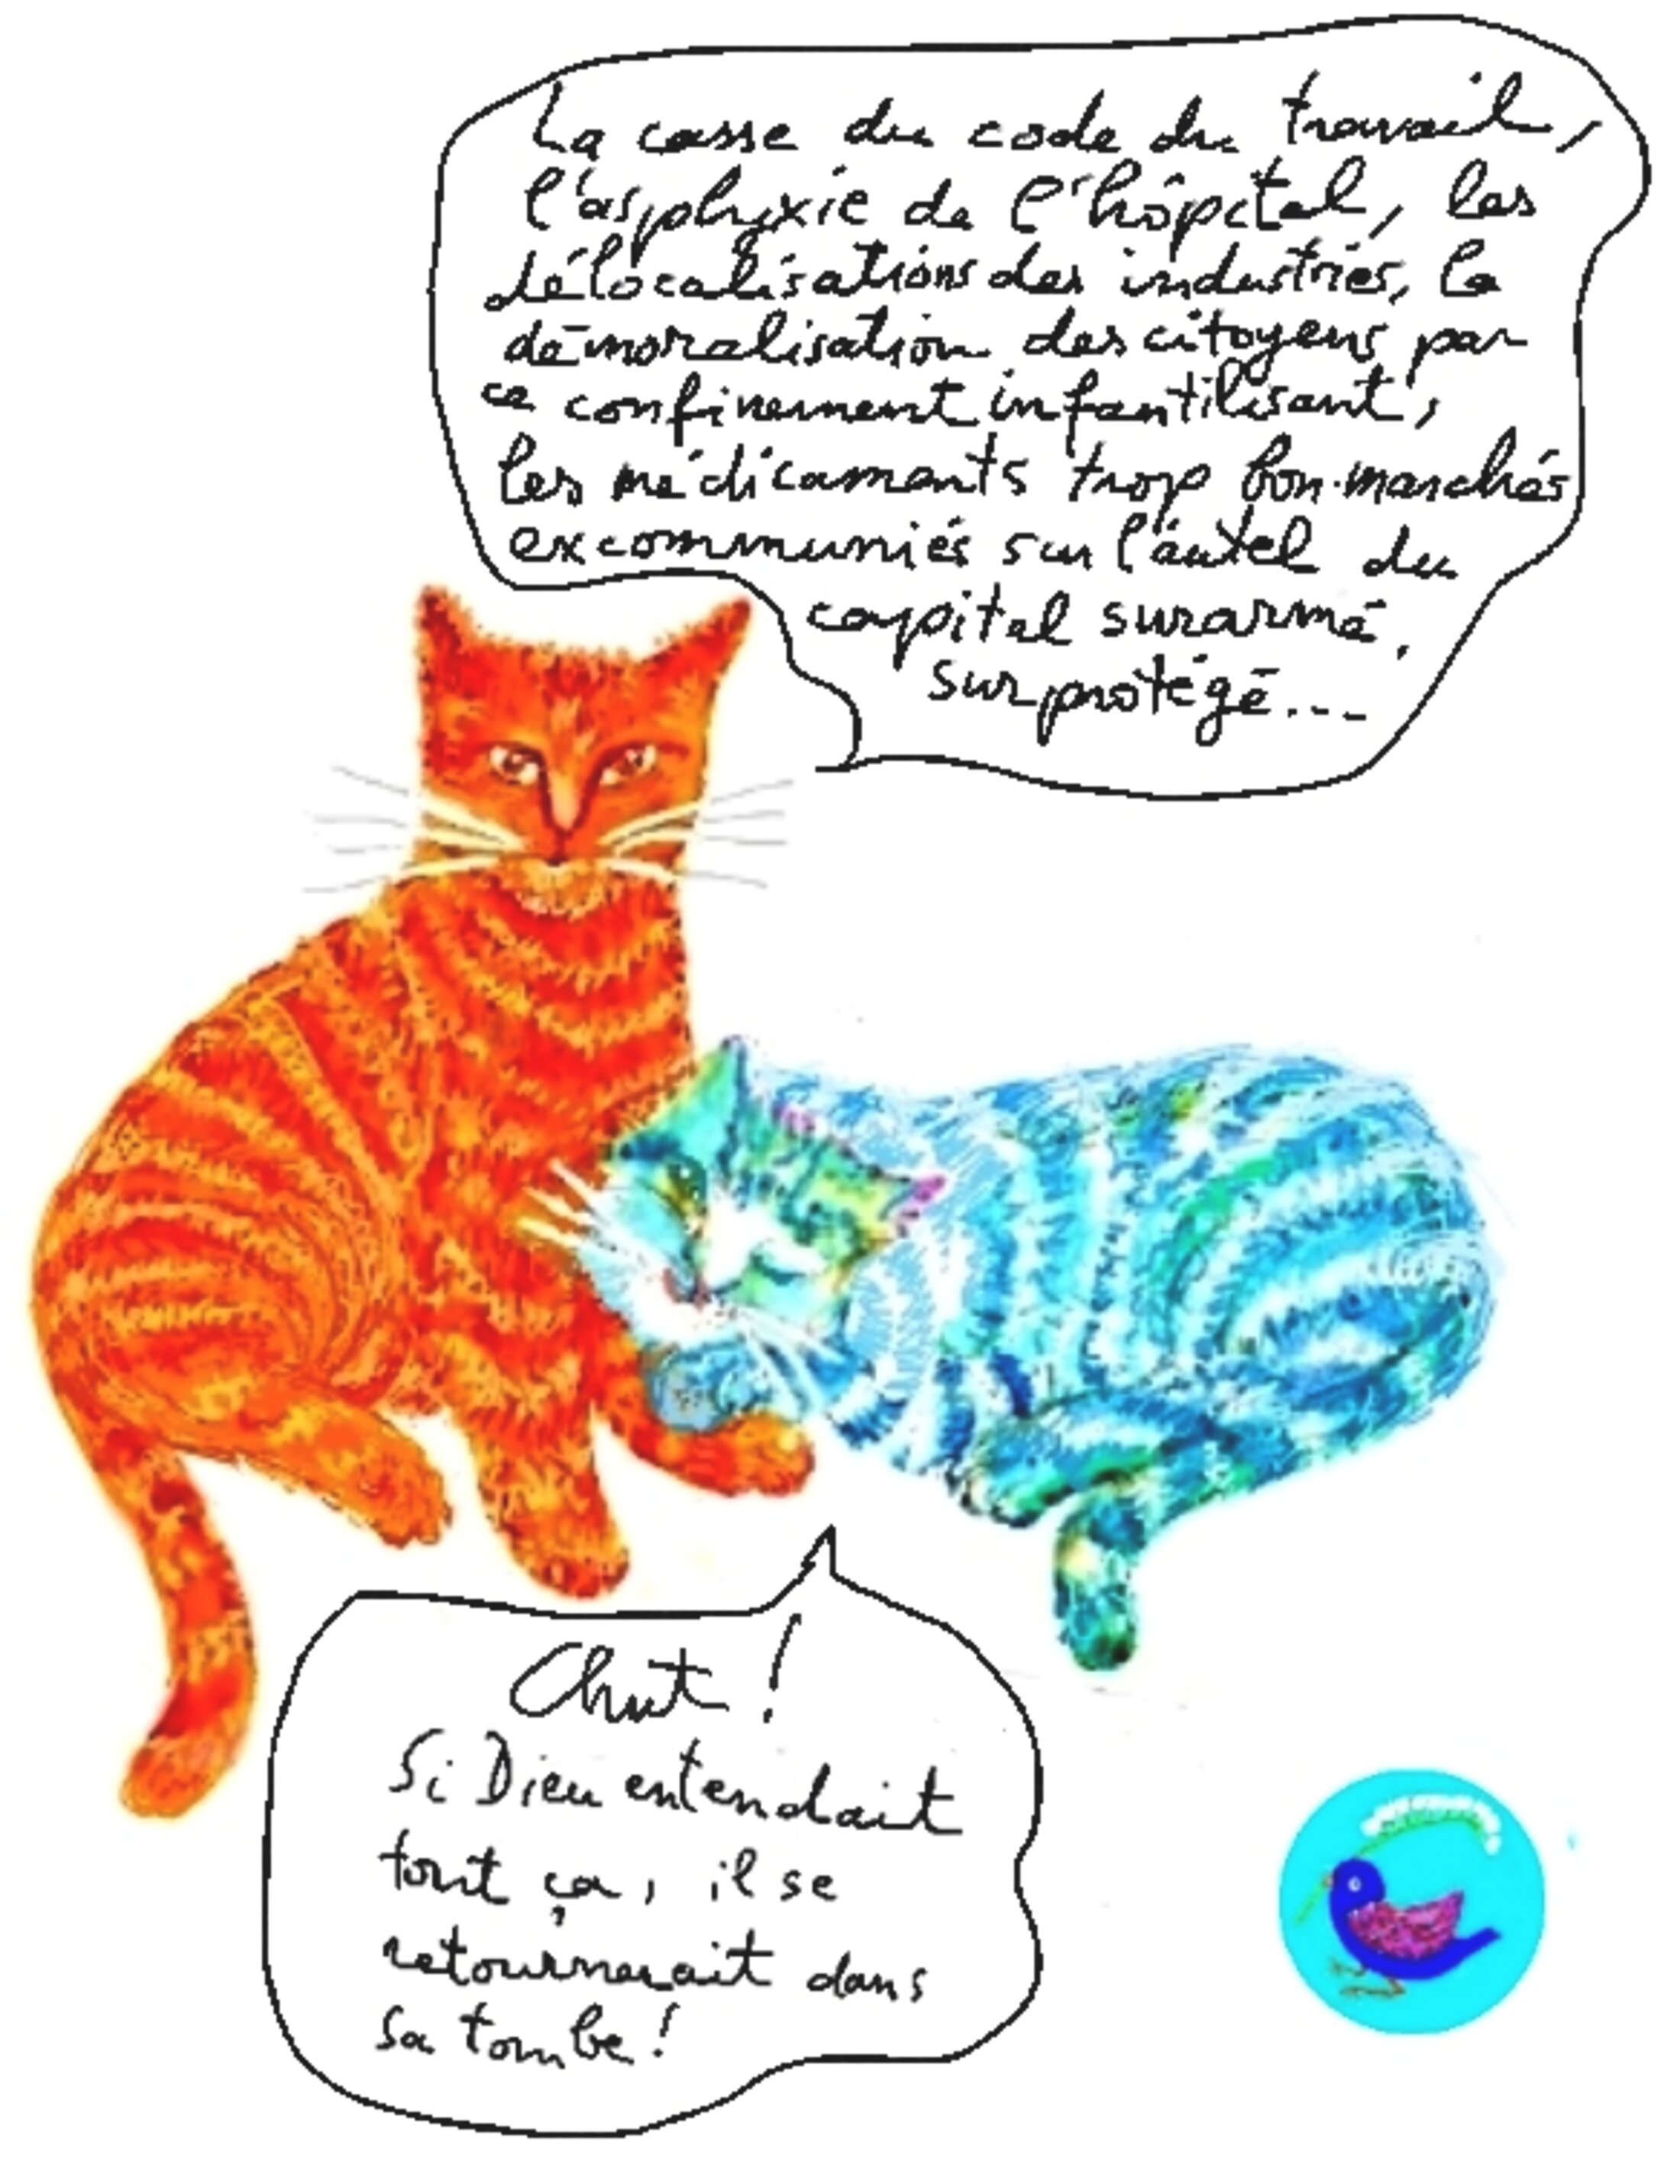 La casse du code du travail,
l'asphyxie de l'hôpital, les
délocalisations des industries, la
démoralisation des citoyens par
ce confinement infantilisant,
les médicaments trop bon-marchés
excommuniés sur l'autel du
capital surarmé,
surprotégé...
Chut !
Si Dieu entendait
tout ça, il se
retournerait dans
sa tombe !